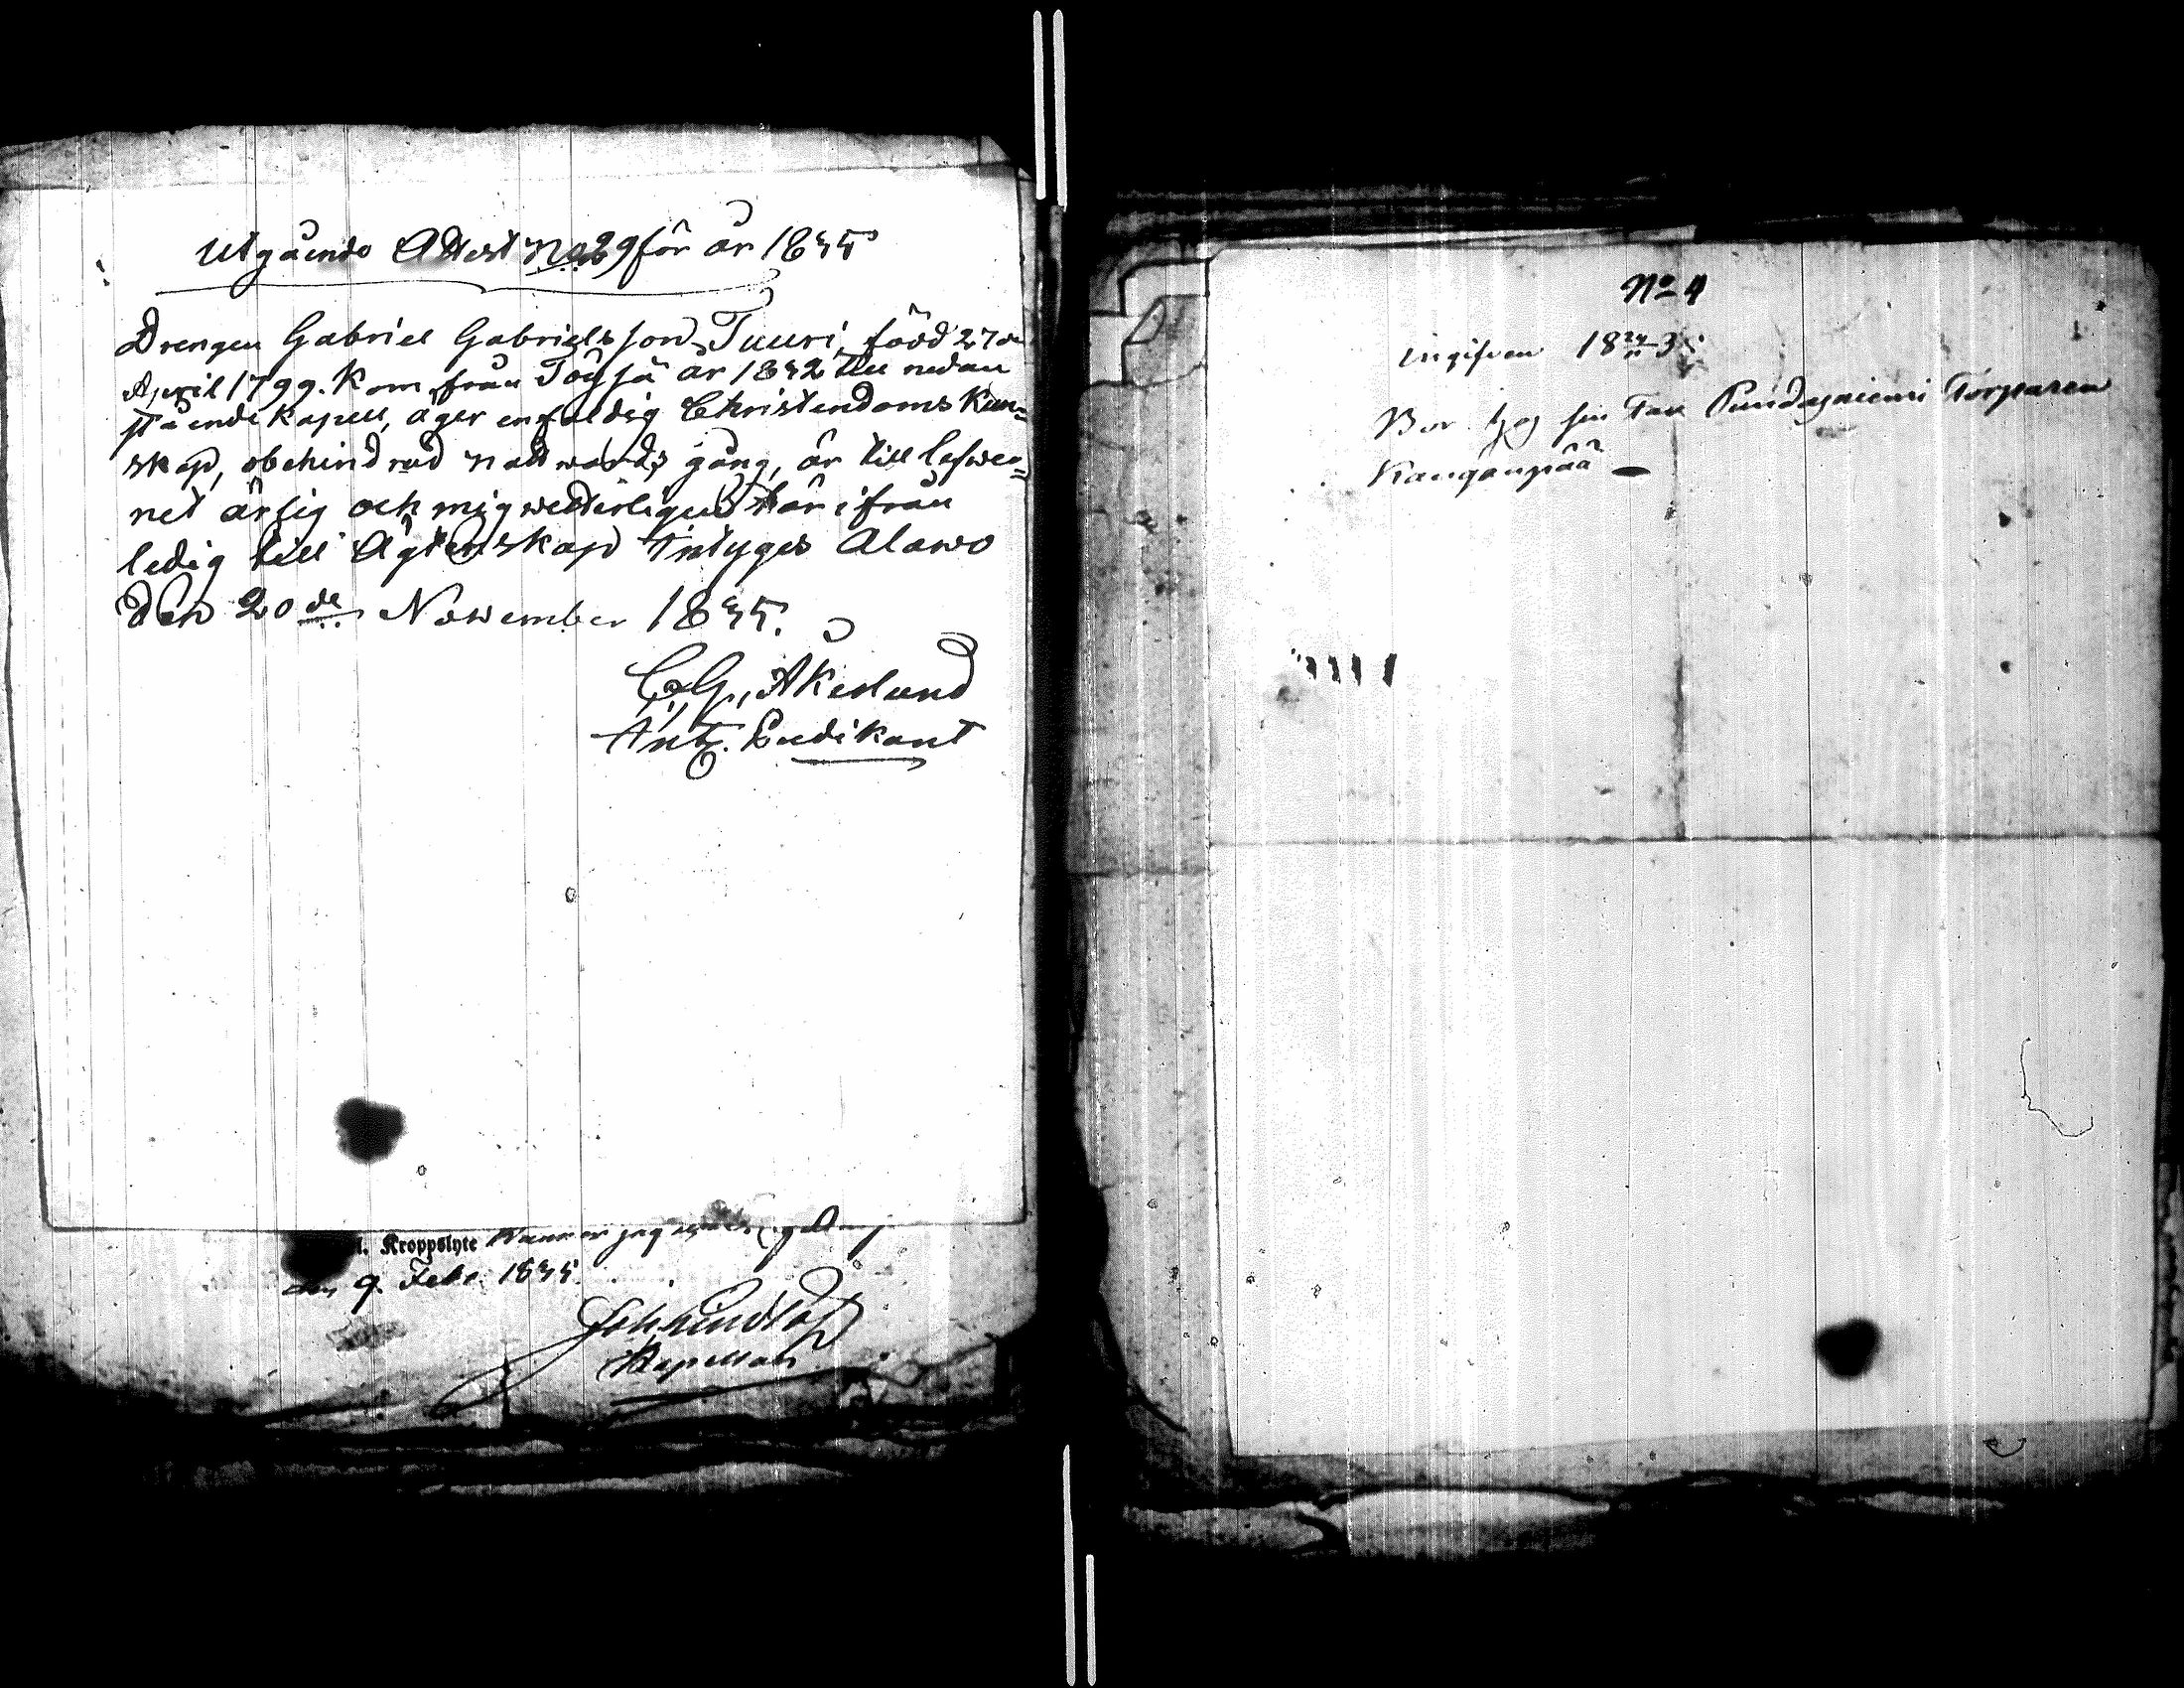 Utgående Attest No 29 för år 1835
Drengen Gabriel Gabrielsson Tuuri, född 27de
April 1799. Kom från Töysä år 1832 till nedan
stående Kapell, äger enfaldig Christendoms Kun=
skap, obehindrad nattwards gång, är till lefwer=
net ärlig och mig wetterligen härifrån
ledig till Ägtenskap intyges Alawo
Den 20de November 1835.
C. G. Åkerlund
Predikant
Kroppslyte Känner jag
den 9. Febr. 1835.
Kapellan
No 4
ingifven 18 35
Bor hos sin Far Torparen
Kanganpää